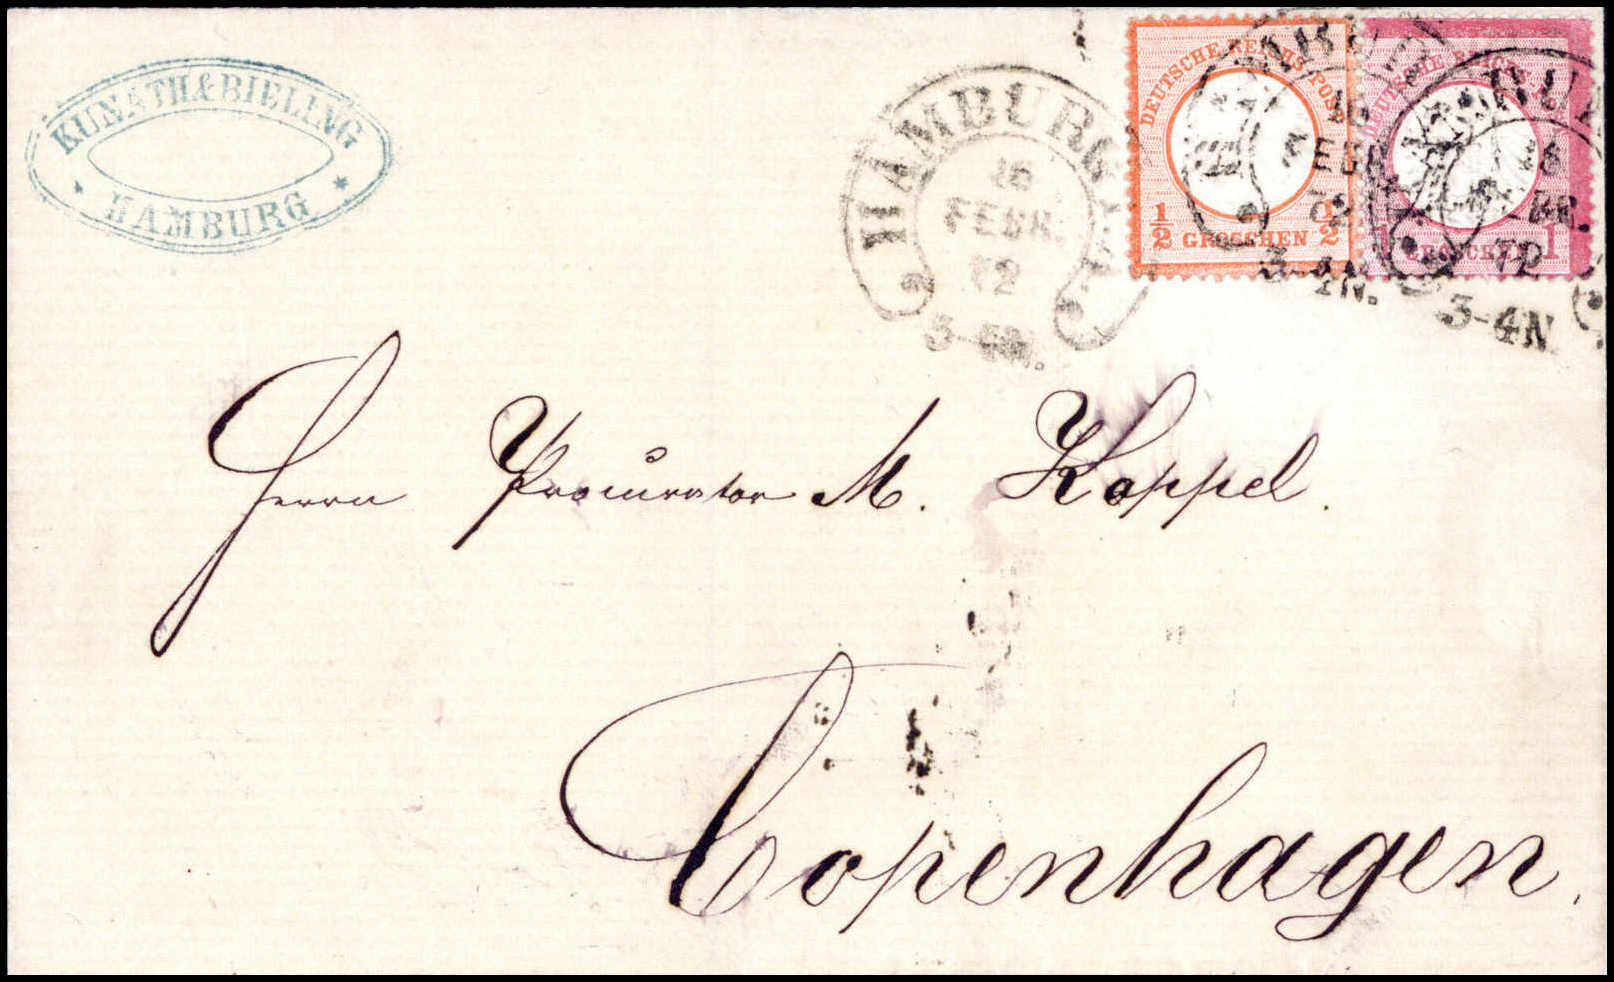 KUNATH & BIELING
HAMBURG
HAMBURG I. A.
16
FEBR.
72
3-4N.
DEUTSCHE REICHS-POST
1/2 GROSCHEN 1/2
FEBR
72
3-4N.
DEUTSCHE REICHS-POST
1 GROSCHEN 1
72
3-4N
Herrn Procurator M. Koppel.
Copenhagen.